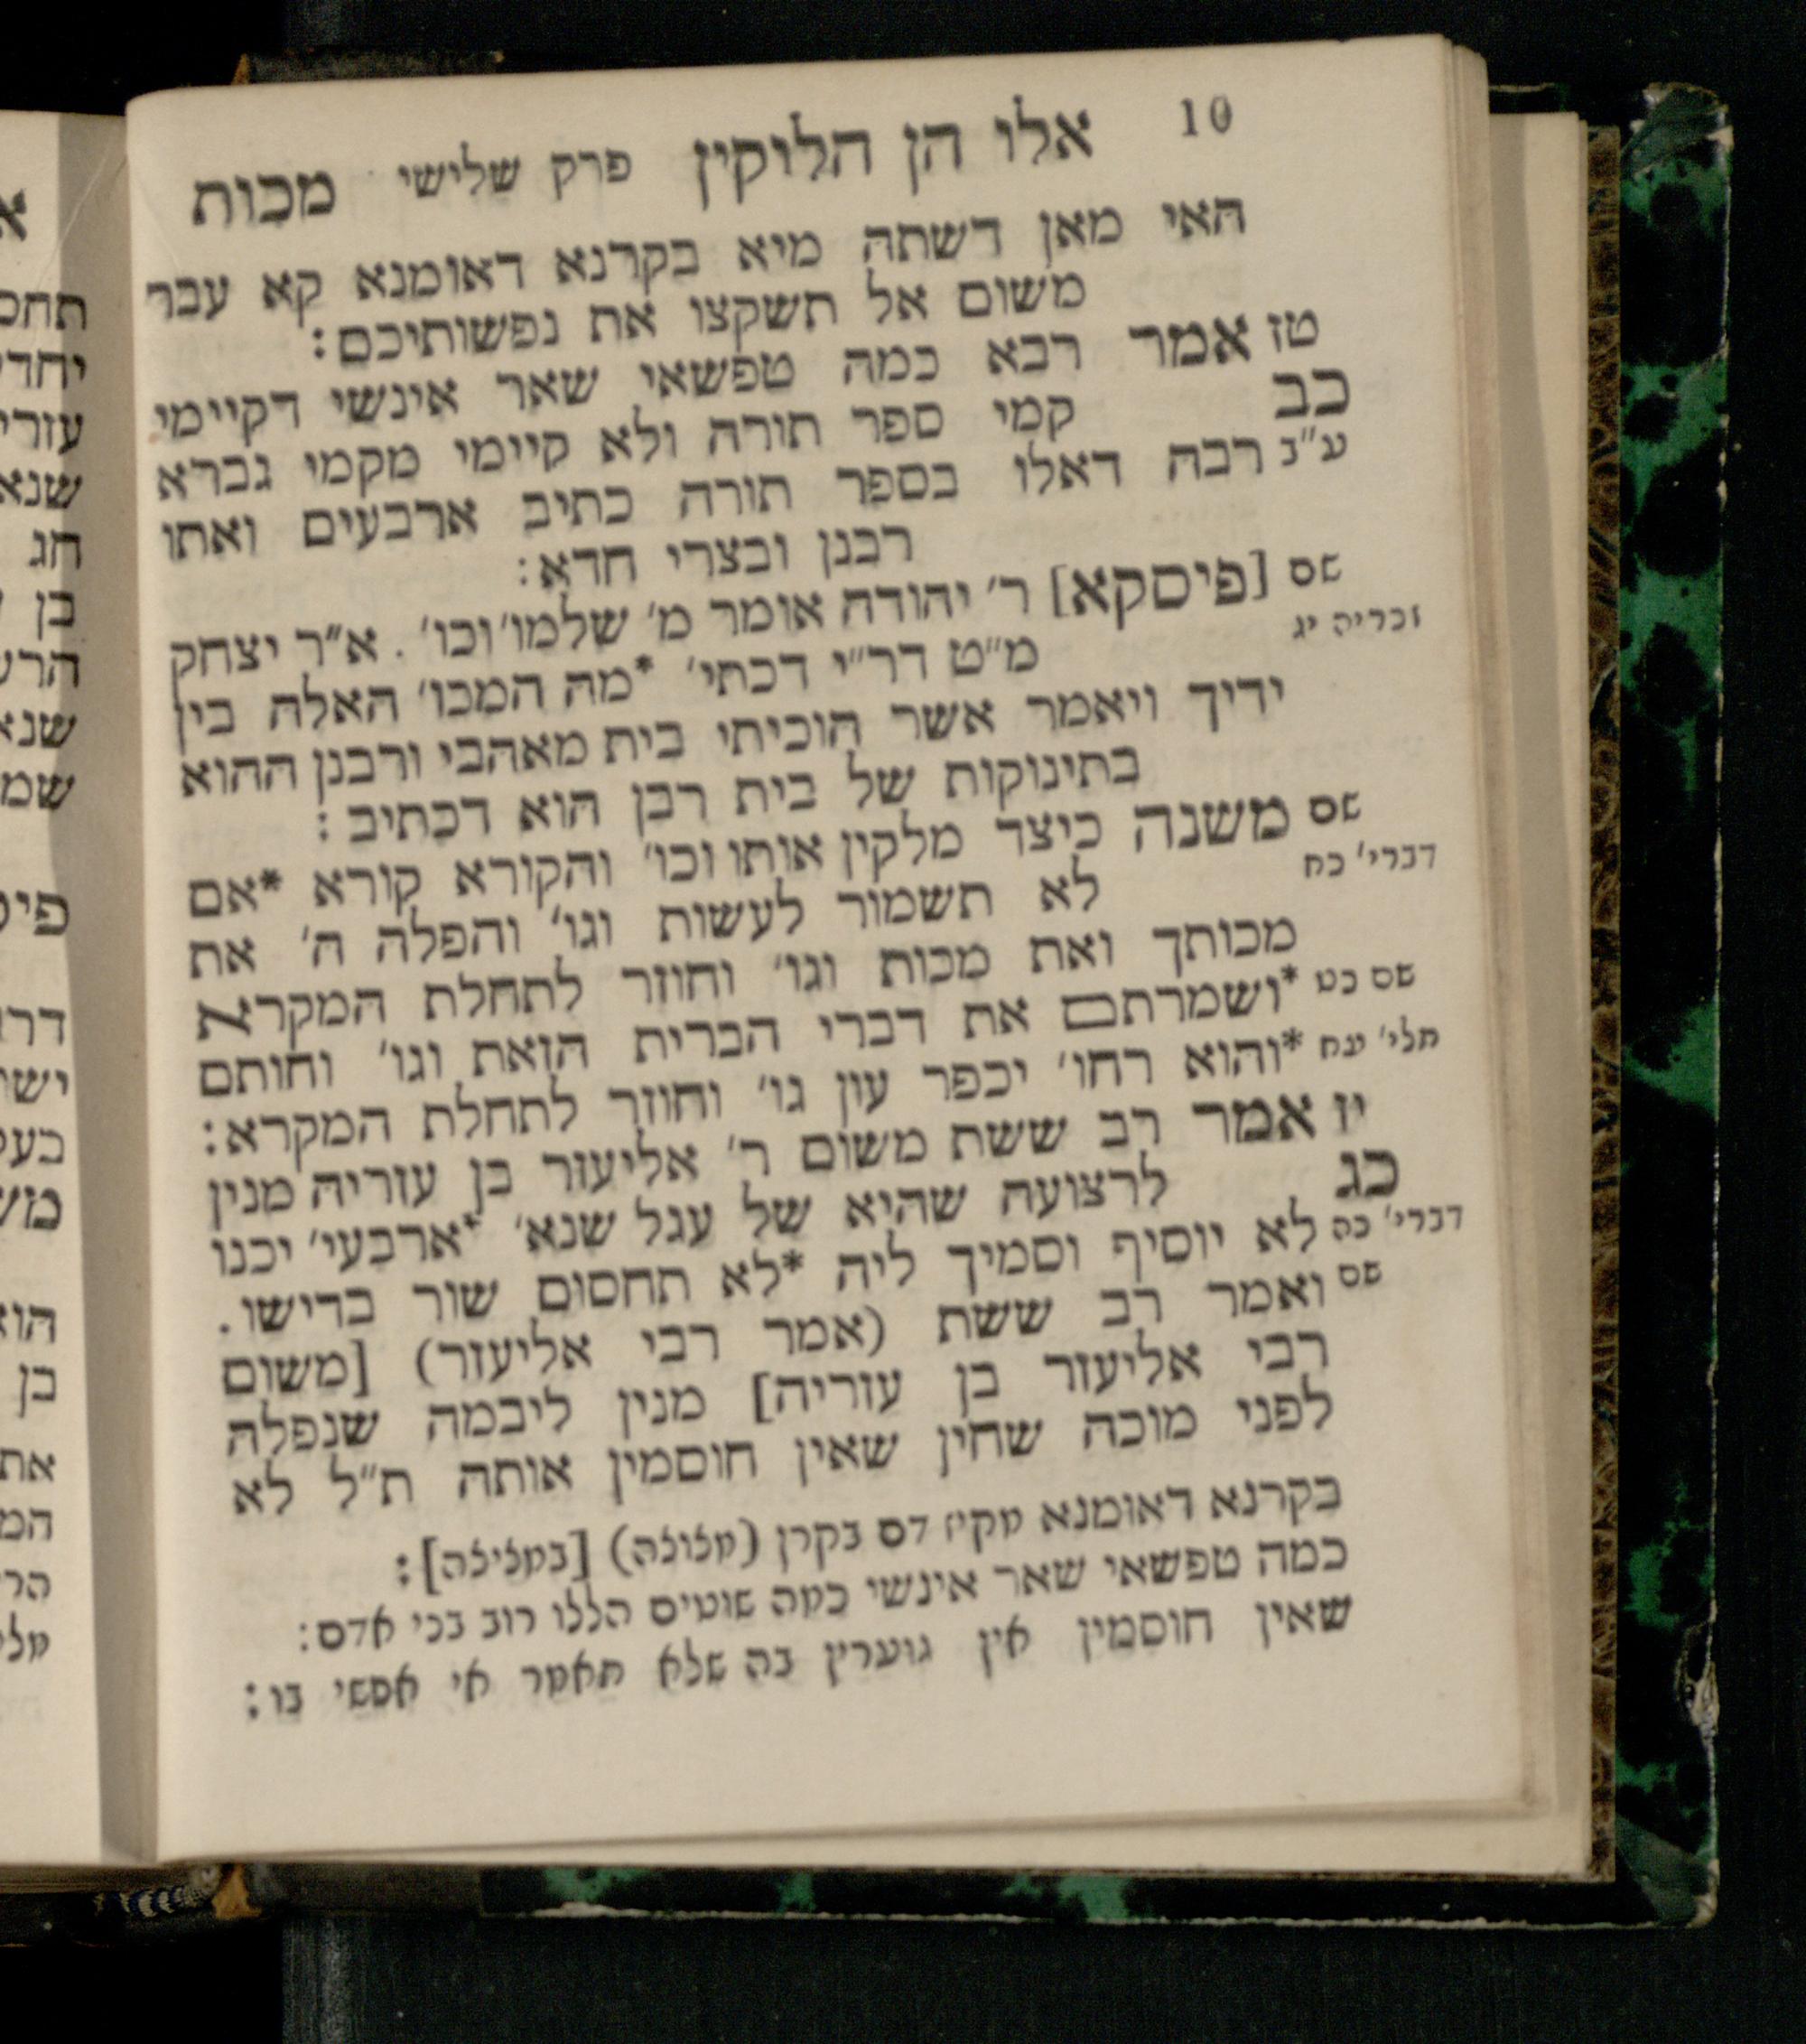 10 אלו הן הלוקין פרק שלישי מכות
האי מאן דשתה מיא בקרנא דאומנא קא עבר
משום אל תשקצו את נפשותיכם:
טז אמר רבא כמה טפשאי שאר אינשי דקיימי
כב קמי ספר תורה ולא קיימי מקמי גברא
ע"ב רבה דאלו בספר תורה כתיב ארבעים ואתו
רבנן ובצרי חדא:
שם [פיסקא] ר' יהודה אומר מ' שלמו' וכו'. א"ר יצחק
זכריה יג מ"ט דר"י דכתי' *מה המכו' האלה בין
ידיך ויאמר אשר הוכיתי בית מאהבי ורבנן ההוא
בתינוקות של בית רבן הוא דכתיב:
שם משנה כיצד מלקין אותו וכו' והקורא קורא *אם
דברי' כח לא תשמור לעשות וגו' והפלה ה' את
מכותך ואת מכות וגו' וחוזר לתחלת המקרא
שם כט *ושמרתם את דברי הברית הזאת וגו' וחותם
תלי' עח *והוא רחו' יכפר עון גו' וחוזר לתחלת המקרא:
יז אמר רב ששת משום ר' אליעזר בן עזריה מנין
כג לרצועה שהיא של עגל שנא' *ארבעי' יכנו
דברי' כה לא יוסיף וסמיך ליה *לא תחסום שור בדישו.
שם ואמר רב ששת (אמר רבי אליעזר) [משום
רבי אליעזר בן עזריה] מנין ליבמה שנפלה
לפני מוכה שחין שאין חוסמין אותה ת"ל לא
בקרנא דאומנא מקיז דם בקרן
כמה טפשאי שאר אינשי כמה שוטים הללו רוב בני אדם:
שאין חוסמין אין גוערין בה שלא תאמר אי אפשי בו:
תחס
יחד
עזרי
שנא
חג
בן
הרש
שנא
שמ
פיס
ישר
בעל
מש
הוא
בן
את
המ
הרי